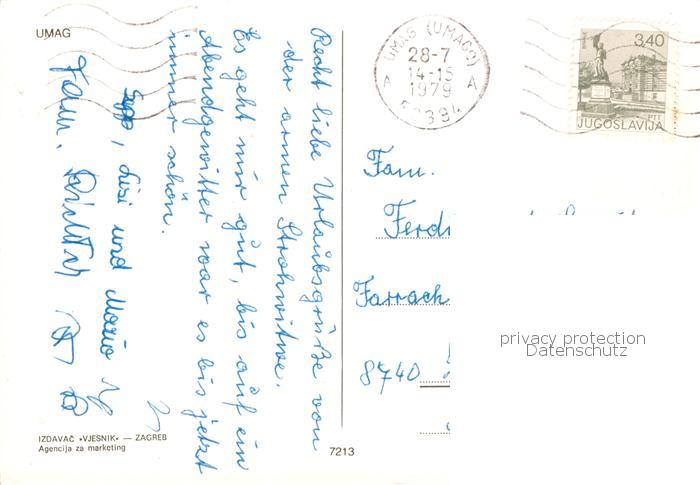 UMAG
Recht liebe Urlaubsgrüße von
der armen Strohwitwe.
Es geht mir gut, bis auf ein
Abendgewitter war es bis jetzt
immer schön.
Sepp, Lisi und Mario
Fam.
IZDAVAČ »VJESNIK« — ZAGREB
Agencija za marketing
7213
UMAG (UMAGO)
28-7
14-15
1979
A A
52394
3,40
PTT
JUGOSLAVIJA
Fam.
Ferdi
Farrach
8740
privacy protection
Datenschutz